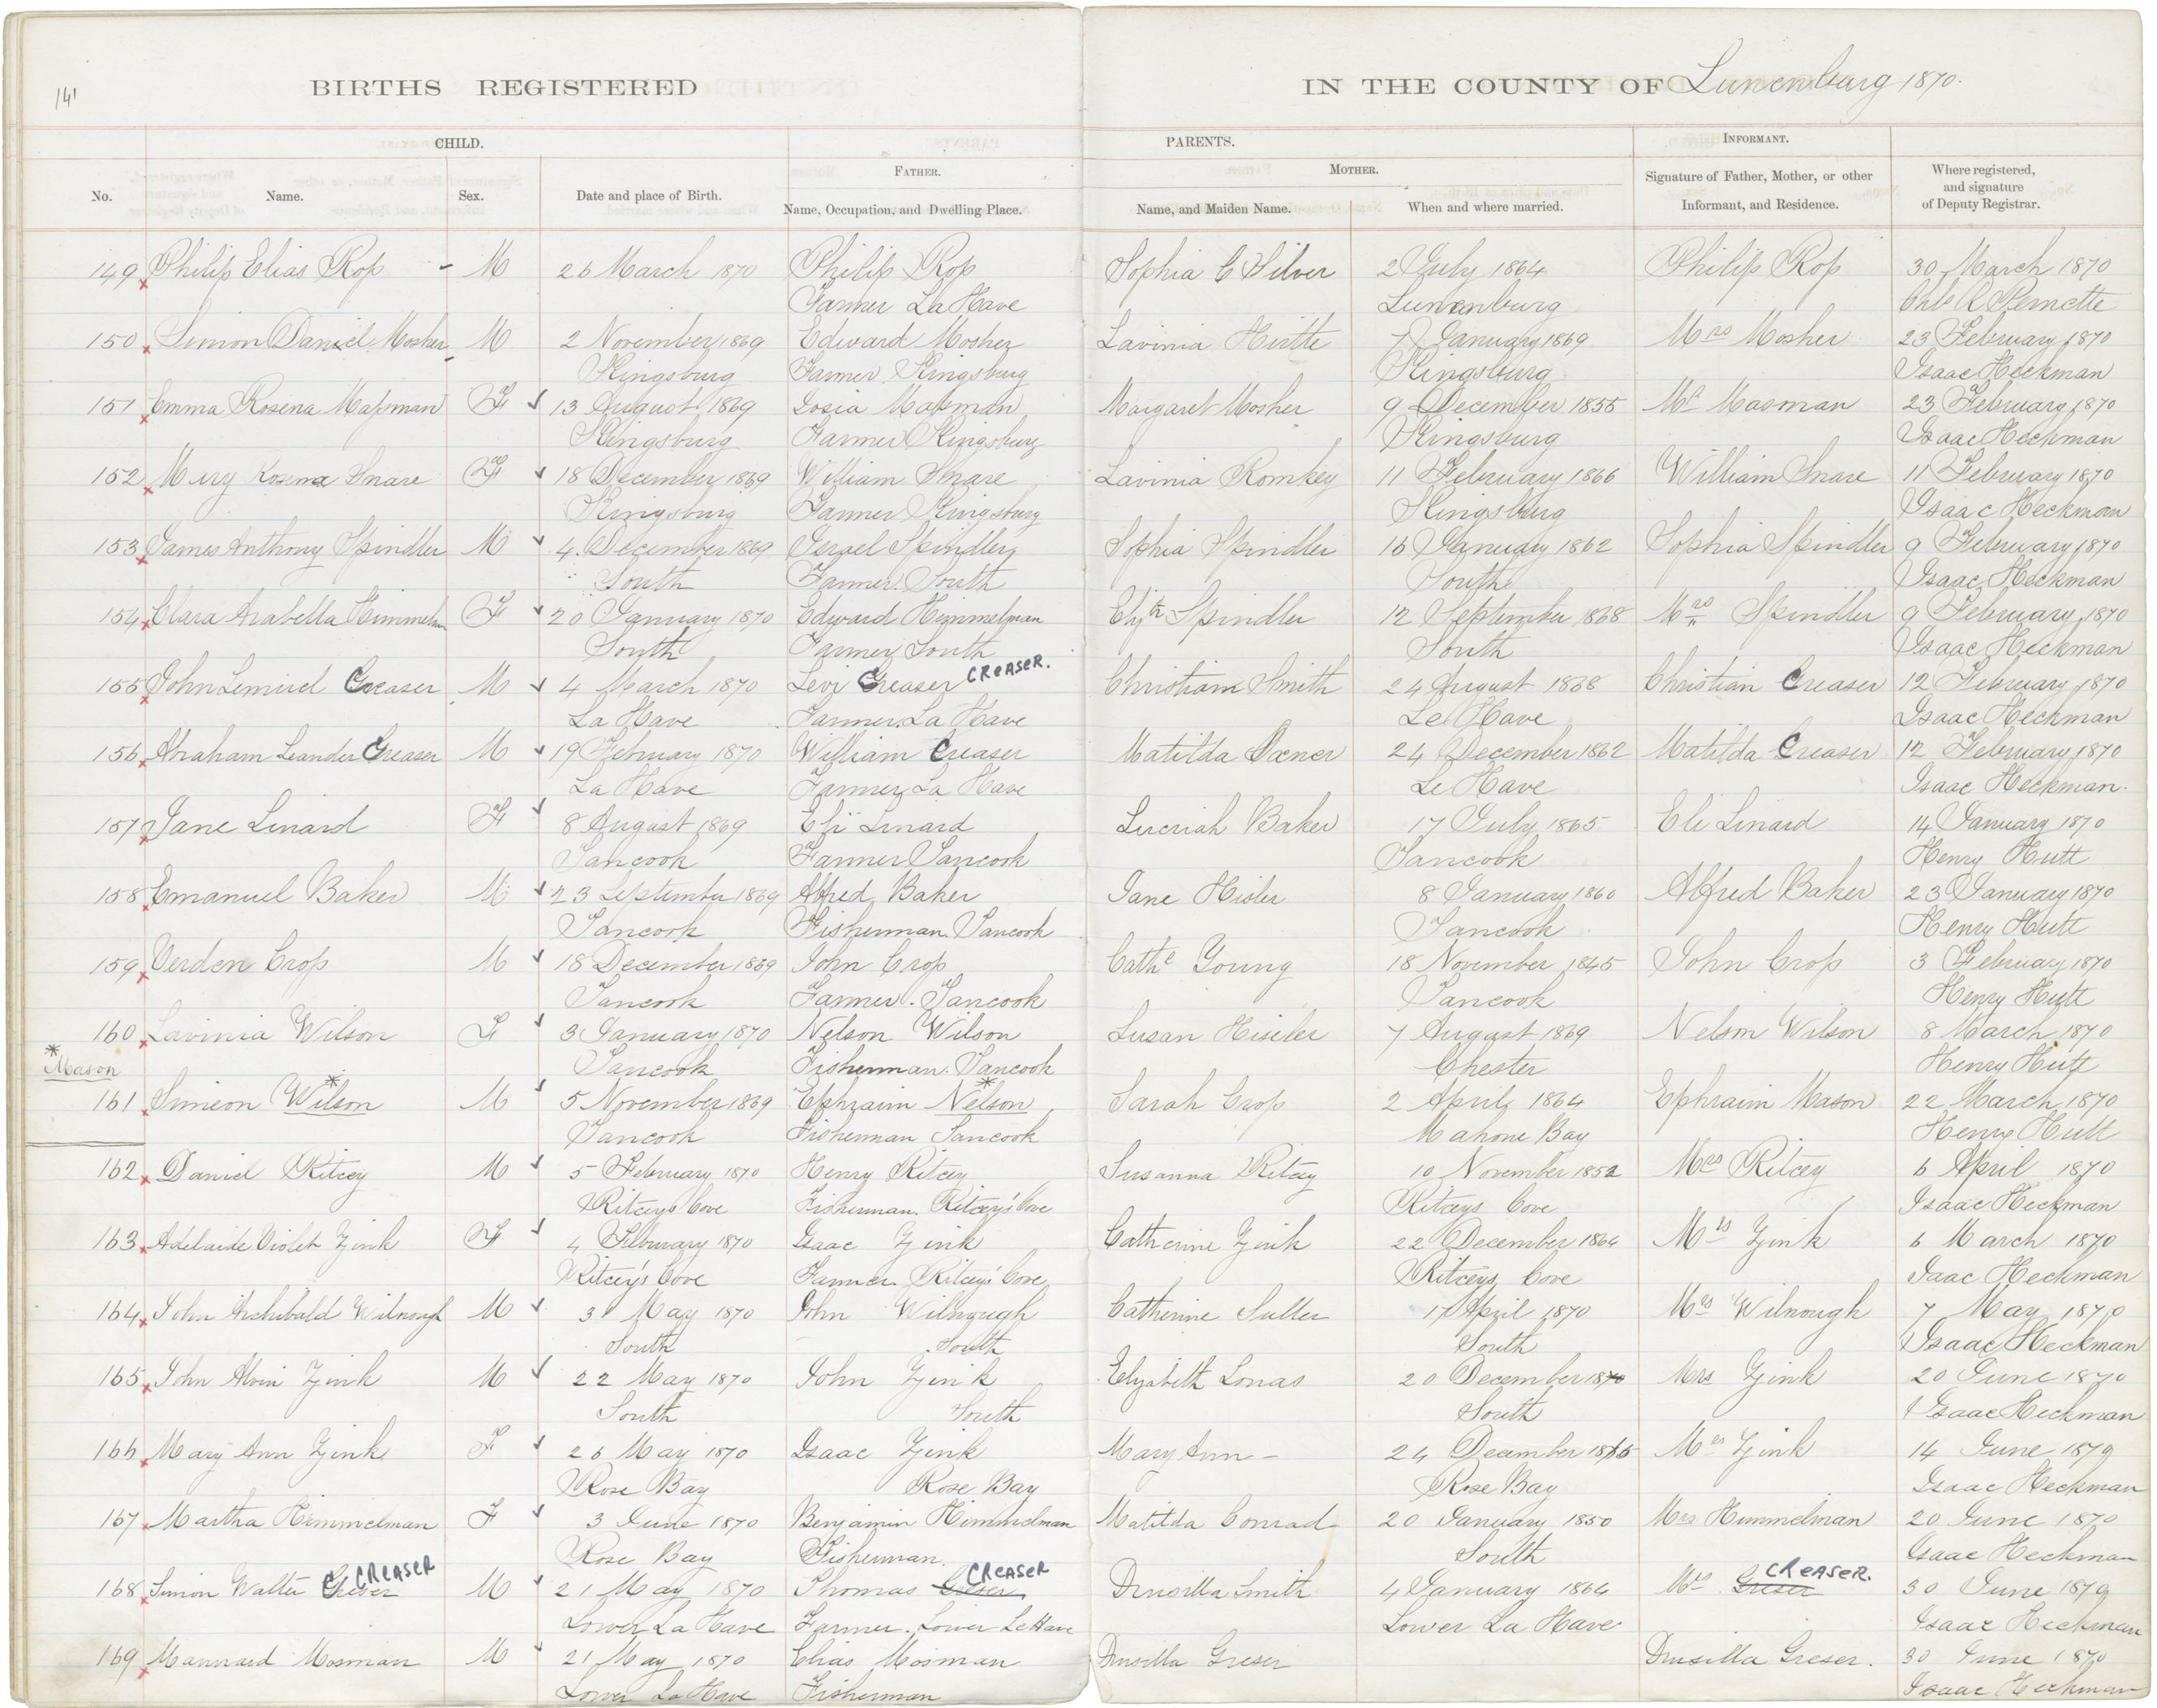 141
BIRTHS REGISTERED IN THE COUNTY OF Lunenburg 1870.
CHILD. PARENTS. INFORMANT.
FATHER. MOTHER.
No. Name. Sex. Date and place of Birth. Name, Occupation, and Dwelling Place. Name, and Maiden Name. When and where married. Signature of Father, Mother, or other Informant, and Residence. Where registered, and signature of Deputy Registrar.
149 Philip Elias Rop - M 26 March 1870 Philip Rop Sophia C Silver 2 July 1864 Philip Rop 30 March 1870
Farmer La Have Lunenburg Chls R Pernette
150 Simion Daniel Mosher M 2 November 1869 Edward Mosher Lavinia Hirtle 7 January 1869 Mrs Mosher 23 February 1870
Kingsburg Farmer Kingsburg Kingsburg Isaac Heckman
151 Emma Rosena Masman F 13 August 1869 Josia Masman Margaret Mosher 9 December 1855 Mr Masman 23 February 1870
Kingsburg Farmer Kingsburg Kingsburg Isaac Heckman
152 Mary Rosena Snare F 18 December 1869 William Snare Lavinia Romkey 11 February 1866 William Snare 11 February 1870
Kingsburg Farmer Kingsburg Kingsburg Isaac Heckman
153 James Anthony Spindler M 4 December 1869 Israel Spindler Sophia Spindler 16 January 1862 Sophia Spindler 9 February 1870
South Farmer South South Isaac Heckman
154 Clara Arabella Himmelm F 20 January 1870 Edward Himmelman Elizth Spindler 12 September 1868 Mrs Spindler 9 February 1870
South Farmer South South Isaac Heckman
155 John Lemuel Creaser M 4 March 1870 Levi Creaser CREASER. Christiann Smith 24 August 1868 Christian Creaser 12 February 1870
La Have Farmer La Have Le Have Isaac Heckman
156 Abraham Leander Creaser M 19 February 1870 William Creaser Matilda Oxner 24 December 1862 Matilda Creaser 12 February 1870
La Have Farmer La Have Le Have Isaac Heckman.
157 Jane Linard F 8 August 1869 Eli Linard Lucriah Baker 17 July 1865 Eli Linard 14 January 1870
Tancook Farmer Tancook Tancook Henry Hutt
158 Emanuel Baker M 23 September 1869 Alfred Baker Jane Hisler 8 January 1860 Alfred Baker 23 January 1870
Tancook Fisherman Tancook Tancook Henry Hutt
159 Verden Crop M 18 December 1869 John Crop Cathe Young 18 November 1845 John Crop 3 February 1870
Tancook Farmer. Tancook Tancook Henry Hutt
160 Lavinia Wilson F 3 January 1870 Nelson Wilson Susan Hiseler 7 August 1869 Nelson Wilson 8 March 1870
* Mason Tancook Fisherman Tancook Chester Henry Hutt
161 Simeon Wilson * M 5 November 1869 Ephraim Nelson * Sarah Crop 2 April 1864 Ephraim Mason 22 March 1870
Tancook Fisherman Tancook Mahone Bay Henry Hutt
162 Daniel Ritcey M 5 February 1870 Henry Ritcey Susanna Ritcey 10 November 1852 Mrs Ritcey 6 April 1870
Ritceys Cove Fisherman. Ritcey's Cove Ritceys Cove Isaac Heckman
163 Adelaide Violet Zink F 4 February 1870 Isaac Zink Catherine Zink 22 December 1864 Mrs Zink 6 March 1870
Ritcey's Cove Farmer Ritcey's Cove Ritceys Cove Isaac Heckman
164 John Archibald Wilnough M 3 May 1870 John Wilnough Catherine 17 April 1870 Mrs Wilnough 7 May 1870
South South South Isaac Heckman
165 John Alvin Zink M 22 May 1870 John Zink Elizabeth Lonas 20 December 1870 Mrs Zink 20 June 1870
South South South Isaac Heckman
166 Mary Ann Zink F 26 May 1870 Isaac Zink Mary Ann - 24 December Mrs Zink 14 June 1870
Rose Bay Rose Bay Rose Bay Isaac Heckman
167 Martha Himmelman F 3 June 1870 Benjamin Himmelman Matilda Conrad 20 January 1850 Mrs Himmelman 20 June 1870
Rose Bay Fisherman. South Isaac Heckman
168 Simion Walter Creser CREASER M 21 May 1870 Thomas Creser CREASER Drusilla Smith 4 January 1864 Mrs Greser CREASER. 30 June 1870
Lower La Have Farmer. Lower Le Have Lower La Have Isaac Heckman
169 Mannard Mosman M 21 May 1870 Elias Mosman Drusilla Greser Drusilla Greser. 30 June 1870
Lower La Have Fisherman Isaac Heckman